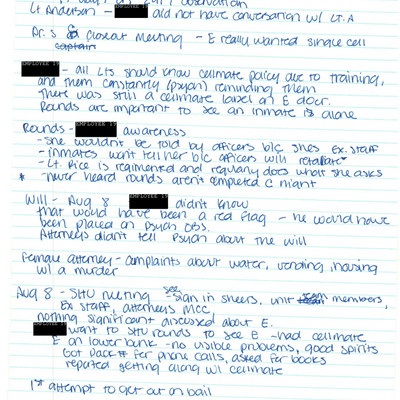 observation
Lt Anderson - did not have conversation w/ Lt. A
Dr. S closeout meeting - E really wanted single cell
captain
- all Lts should know cellmate policy due to training,
and them constantly (psych) reminding them
There was still a cellmate label on E door.
Rounds are important to see an inmate is alone
Rounds - awareness
- she wouldn't be told by officers b/c shes Ex. staff
- inmates won't tell her b/c officers will retaliate
- Lt Rice is regimented and regularly does what she asks
* - never heard rounds aren't completed @ night
Will - Aug 8 didn't know
that would have been a red flag - he would have
been placed on Psych Obs.
Attorneys didn't tell Psych about the will
Female attorney - complaints about water, vending, housing
w/ a murder
Aug 8 - SHU meeting - see sign in sheets, unit team members,
Ex staff, attorneys MCC.
nothing significant discussed about E.
went to SHU rounds to see E - had cellmate
E on lower bunk - no visible problems, good spirits
Got Pac # for phone calls, asked for books
reported getting along w/ cellmate
1st attempt to get out on bail